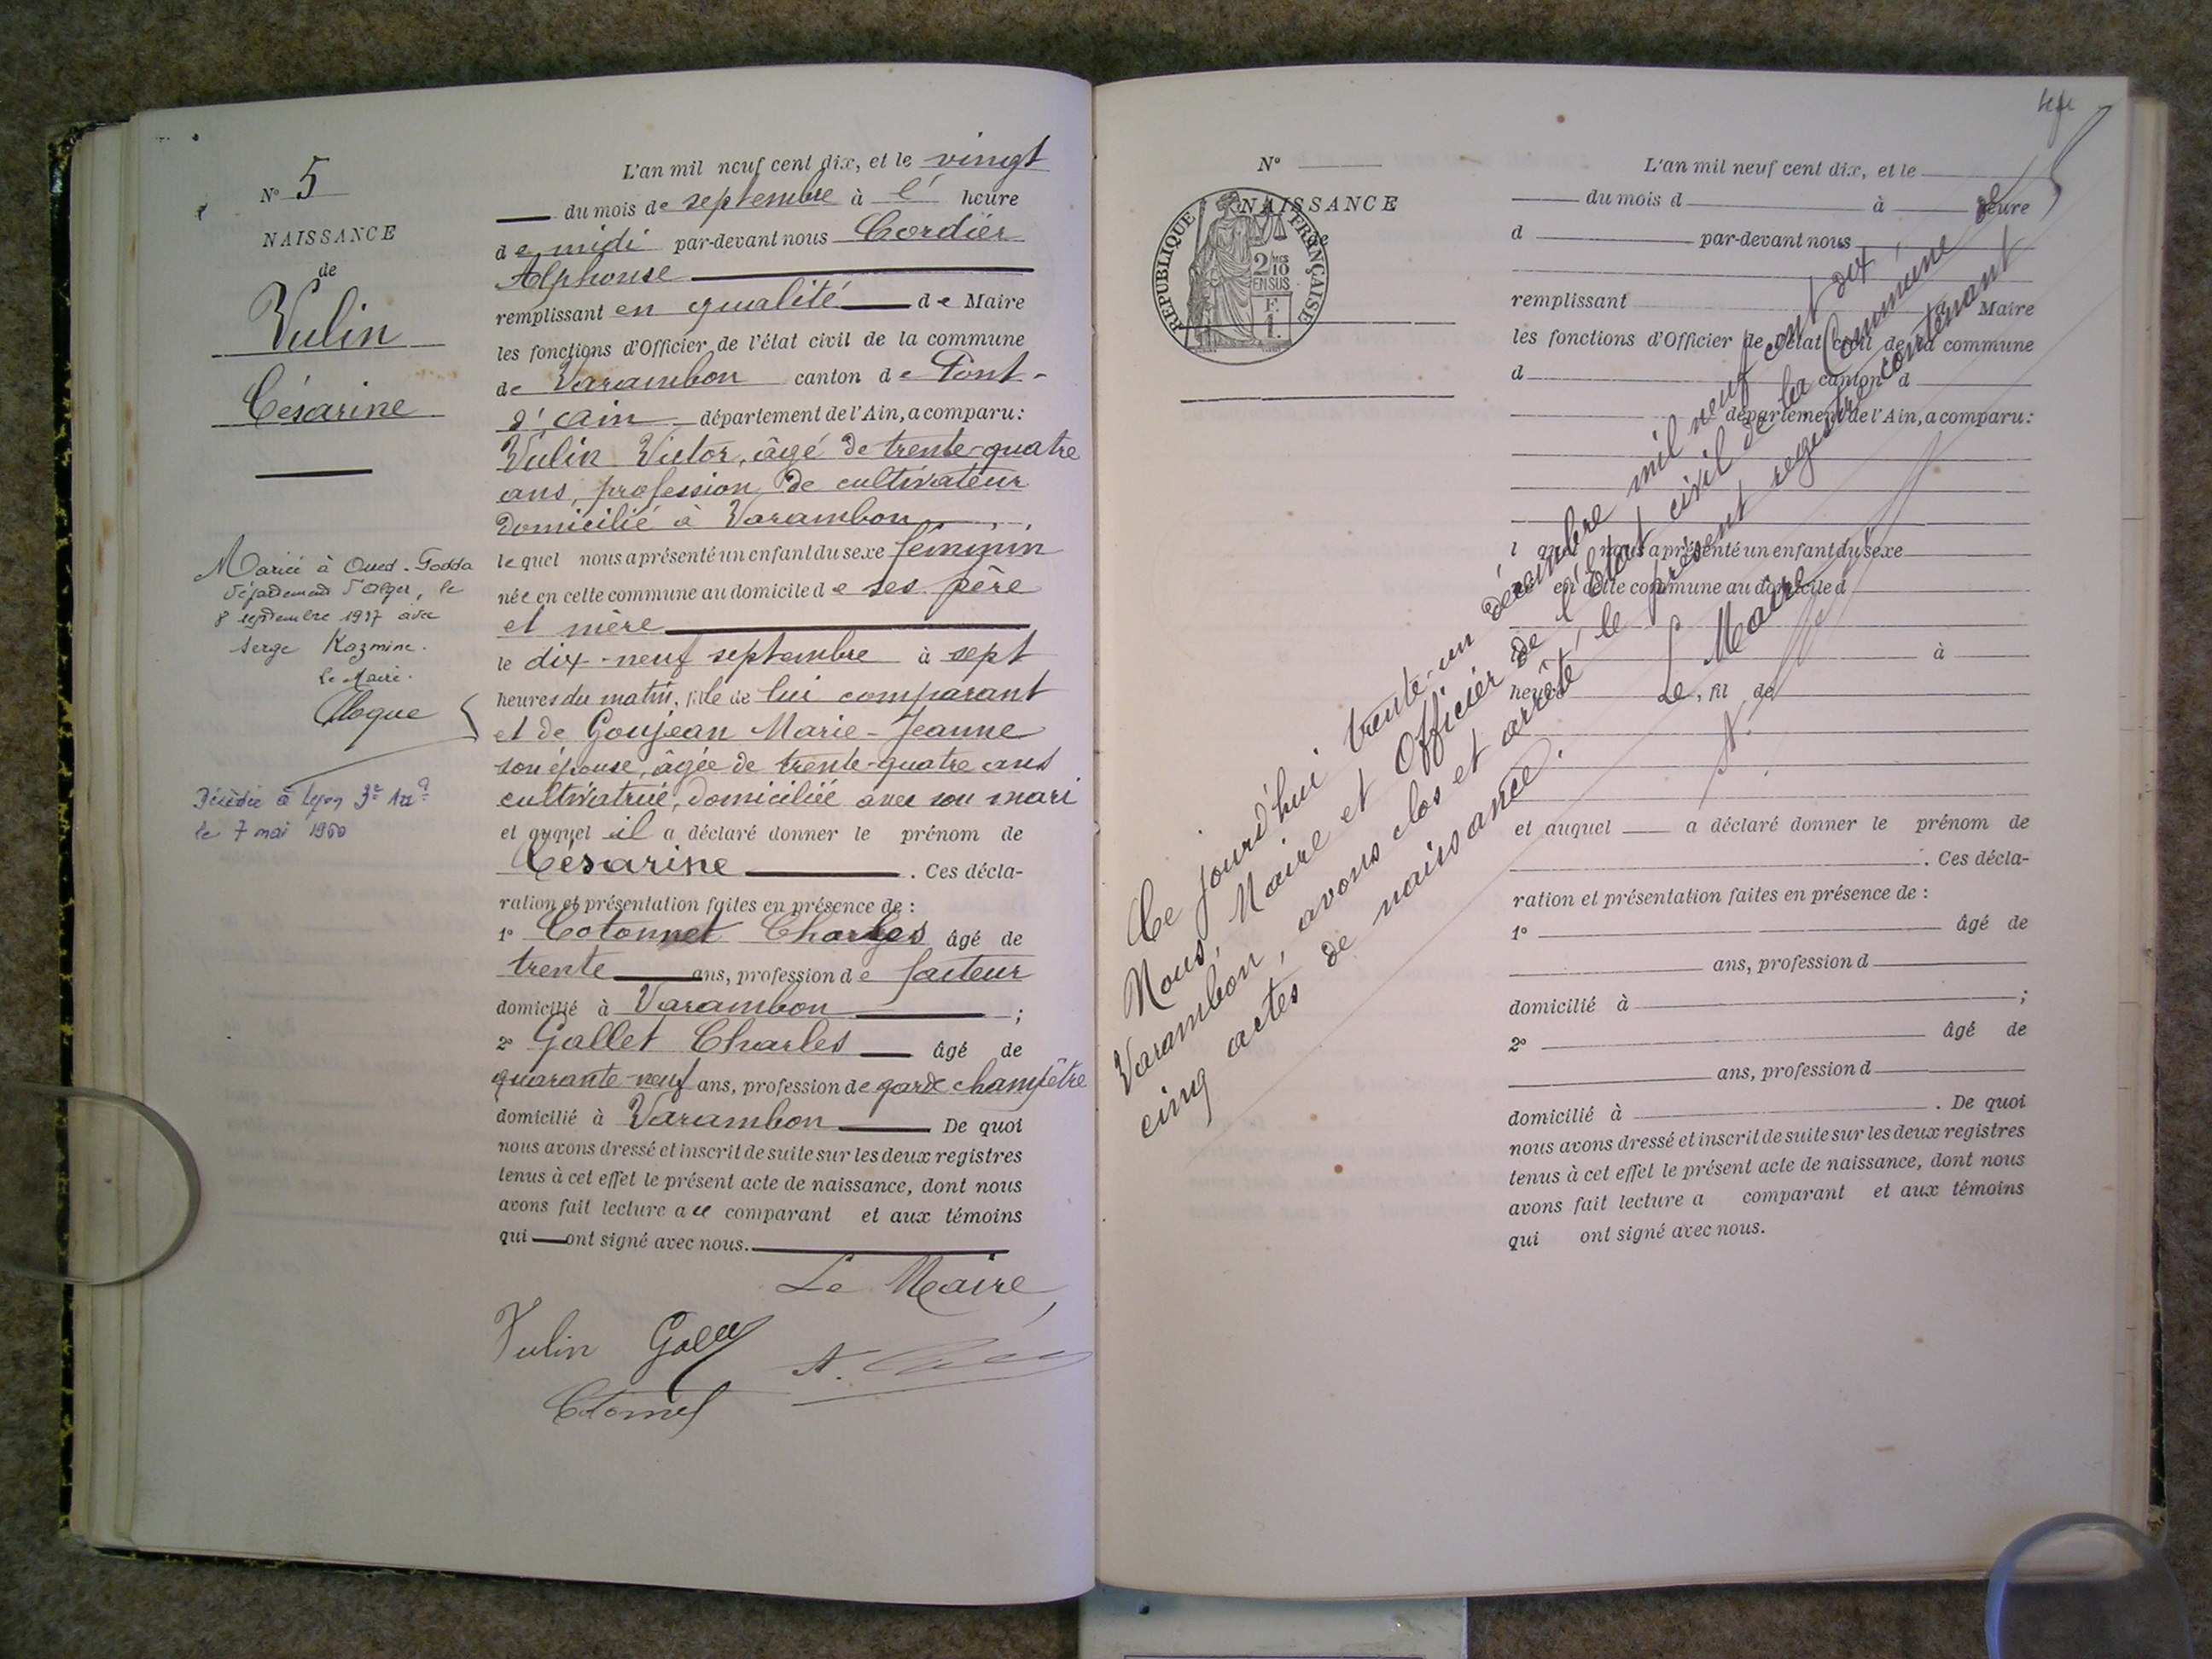 N° 5
NAISSANCE
de
Vulin
Césarine
Mariée à Oued-Fodda
département d'Alger, le
8 septembre 1937 avec
Serge Kozmine.
Le Maire.
Décédée à Lyon 3e Arr
le 7 mai 1960
L'an mil neuf cent dix, et le vingt
du mois de septembre à l' heure
de midi par-devant nous Cordier
Alphonse
remplissant en qualité de Maire
les fonctions d'Officier de l'état civil de la commune
de Varambon canton de Pont-
d'ain département de l'Ain, a comparu:
Vulin Victor, âgé de trente-quatre
ans, profession de cultivateur
domicilié à Varambon
lequel nous a présenté un enfant du sexe féminin
née en cette commune au domicile de ses père
et mère
le dix-neuf septembre à sept
heures du matin, fille de lui comparant
et de Goujean Marie-Jeanne
son épouse, âgée de trente-quatre ans
cultivatrice, domiciliée avec son mari
et auquel il a déclaré donner le prénom de
Césarine . Ces décla-
ration et présentation faites en présence de :
1° Cotonnet Charles âgé de
trente ans, profession de facteur
domicilié à Varambon ;
2° Gallet Charles âgé de
quarante-neuf ans, profession de garde champêtre
domicilié à Varambon De quoi
nous avons dressé et inscrit de suite sur les deux registres
tenus à cet effet le présent acte de naissance, dont nous
avons fait lecture au comparant et aux témoins
qui ont signé avec nous.
Le Maire,
Vulin
N°
NAISSANCE
REPUBLIQUE FRANÇAISE
2/10 EN SUS
L'an mil neuf cent dix, et le
du mois d à heure
d par-devant nous
remplissant d Maire
les fonctions d'Officier de l'état civil de la commune
d canton d
département de l'Ain, a comparu:
l quel nous a présenté un enfant du sexe
en cette commune au domicile d
à
heure , fil de
et auquel a déclaré donner le prénom de
. Ces décla-
ration et présentation faites en présence de :
1° âgé de
ans, profession d
domicilié à ;
2° âgé de
ans, profession d
domicilié à . De quoi
nous avons dressé et inscrit de suite sur les deux registres
tenus à cet effet le présent acte de naissance, dont nous
avons fait lecture a comparant et aux témoins
qui ont signé avec nous.
Ce jourd'hui trente-un décembre mil neuf cent dix
Nous, Maire et Officier de l'état civil de la Commune de
Varambon, avons clos et arrêté le présent registre contenant
cinq actes de naissance.
Le Maire